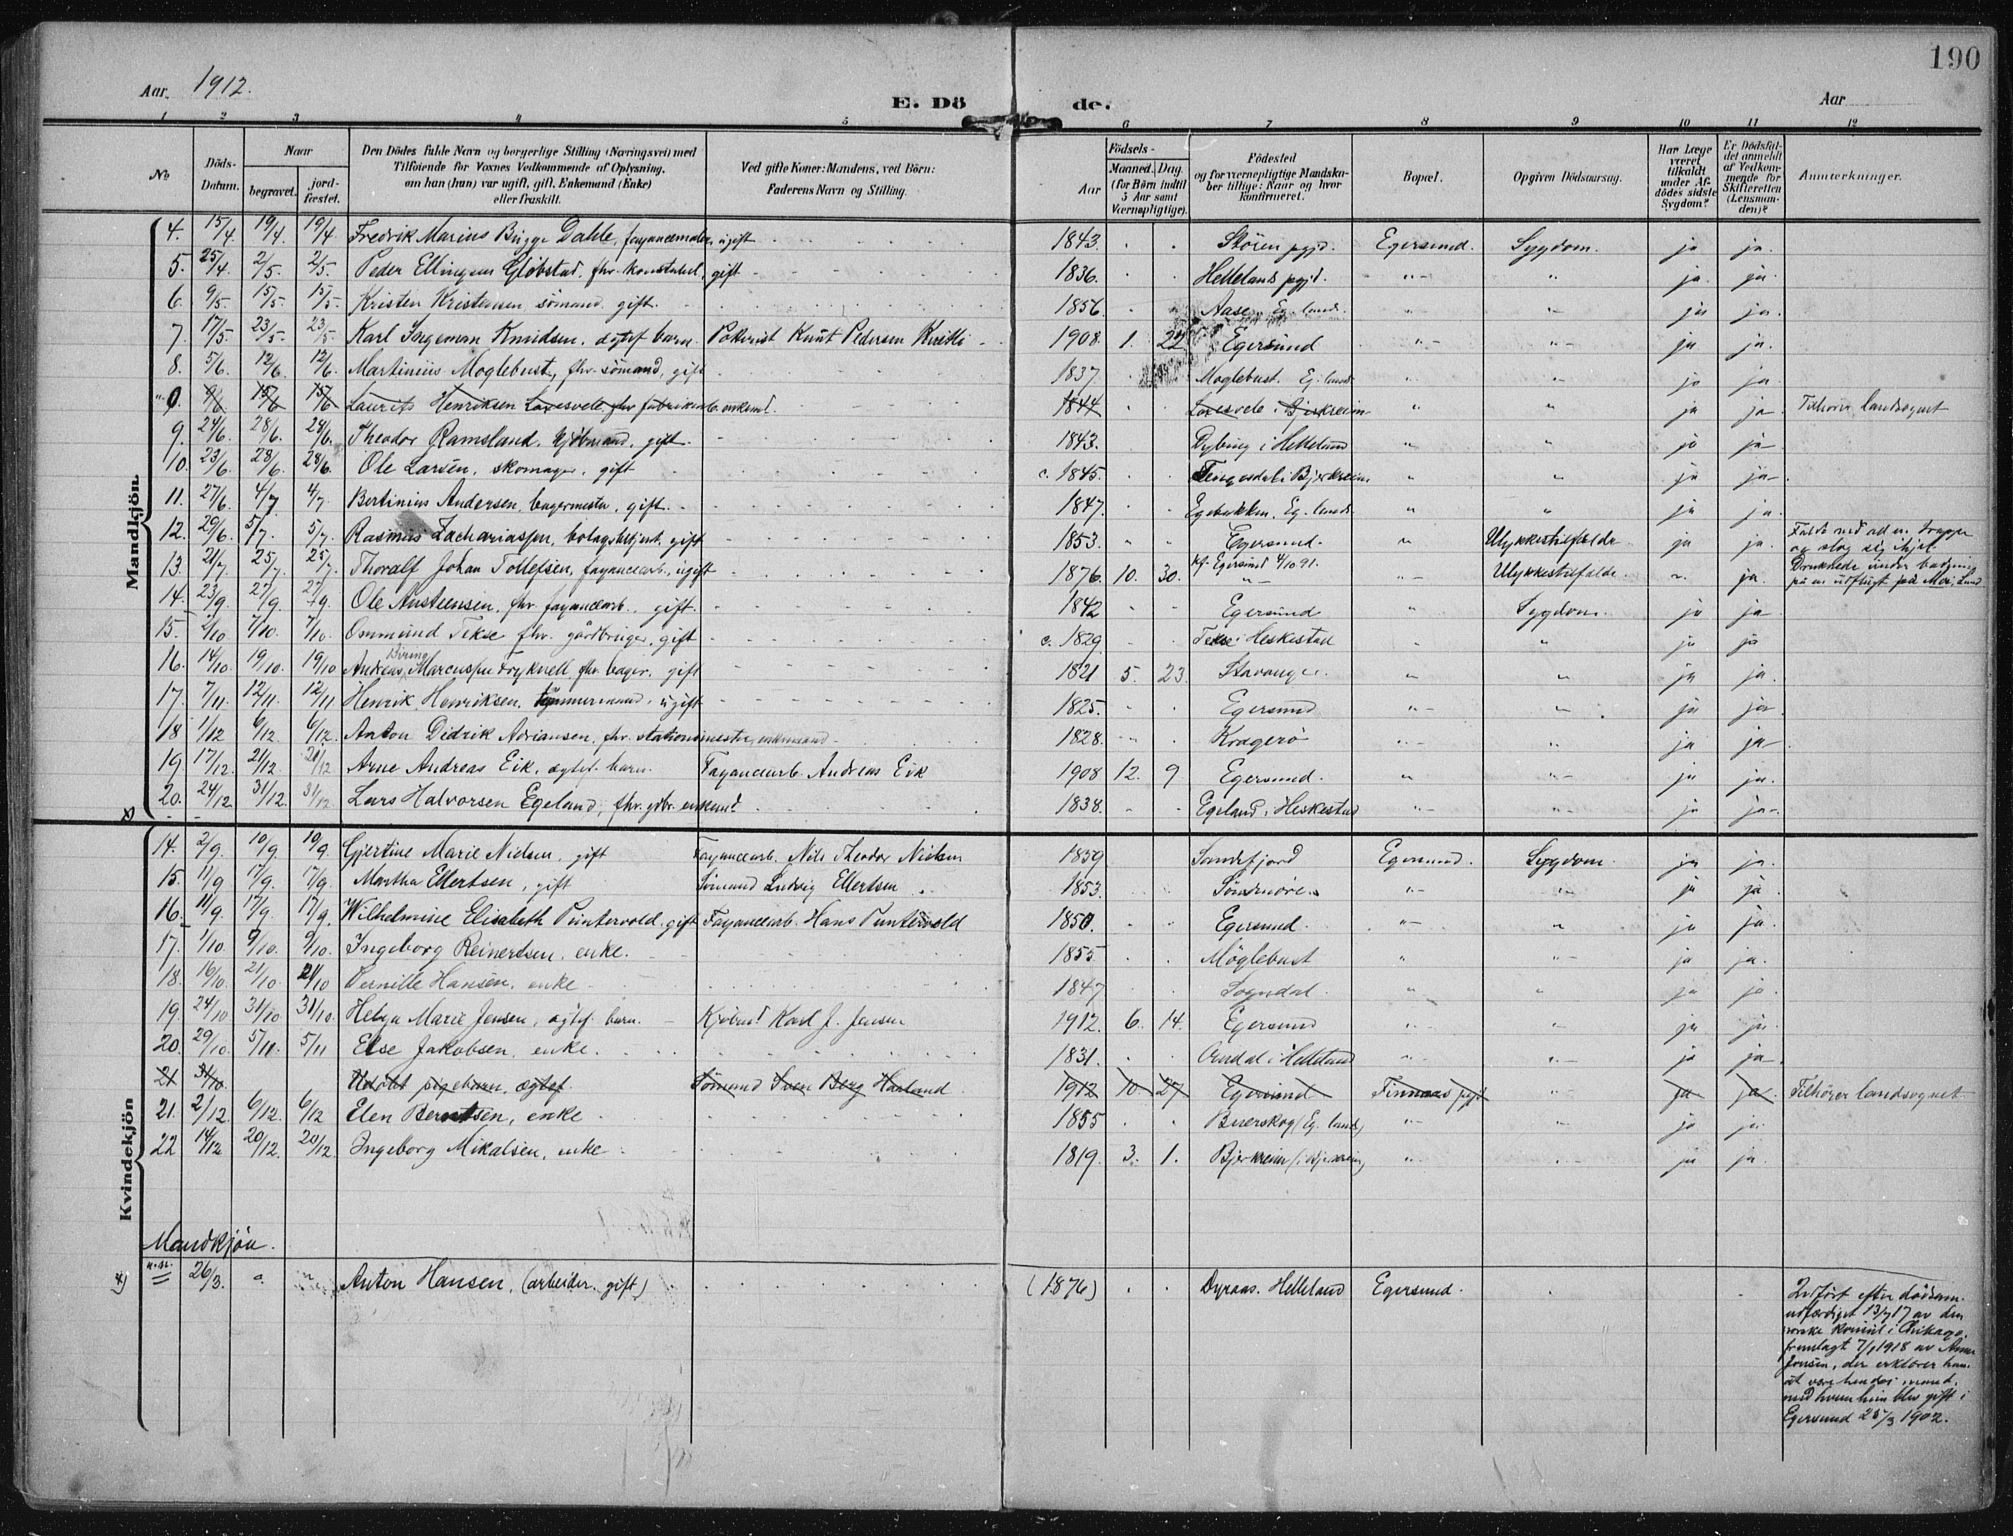 190
Aar. 1912.
E. Dö de.
Aar
1 2 3 4 5 6 7 8 9 10 11 12
No
Döds-Datum.
Naar
begravet.
jord-fæstet.
Den Dödes fulde Navn og borgerlige Stilling (Næringsvei) med
Tilföiende for Voxnes Vedkommende af Oplysning,
om han (hun) var ugift, gift, Enkemand (Enke)
eller fraskilt.
Ved gifte Koner: Mandens, ved Börn:
Faderens Navn og Stilling.
Födsels-
Aar
Maaned.
Dag
(for Börn indtil
5 Aar samt
Værnepligtige).
Födested
og for værnepligtige Mandska-
ber tillige: Naar og hvor
konfirmeret.
Bopæl.
Opgiven Dödsaarsag.
Har Læge
været
tilkaldt
under Af-
dödes sidste
Sygdom?
Er Dödsfal-
det anmeldt
af Vedkom-
mende for
Skifteretten
(Lensman-
den)?
Anmærkninger.
Mandkjön.
4. 15/4. 19/4. 19/4. Fredrik Marius Bugge Dahle, fayancemaler, ugift 1843. Stören pgjd. Egersund. Sygdom. ja ja.
5. 25/4. 2/5. 2/5. Peder Ellingsen Glöbstad, fhv. konstabel, gift 1836. Hellelands pgjd. " " ja. ja.
6. 9/5. 15/5. 15/5. Kristen Kristensen sömand. gift. 1856. Aase, Eg. lands. " " ja ja.
7. 17/5. 23/5. 23/5. Karl Ingemann Knudsen, ægtef barn. Knut Pedersen 1908. 1. 22. Egersund " " ja ja.
8. 5/6. 12/6. 12/6. Martinius Moglebust, fhv. sömand, gift 1837. Moglebust. Eg. lands. " " ja ja.
9. 9/6 15/6 15/6 Laurits Henriksen Laxesvele, fhv fabrikarb. enkemd. 1844 Laxesvele i Bjerkreim " " ja ja. Tilhører landsognet
9. 24/6. 28/6. 28/6. Theodor Ramsland, kjöbmand, gift. 1843. Dybing i Helleland " " ja ja
10. 23/6 28/6. 28/6. Ole Larsen, skomager, gift c. 1845. i Bjerkreim " " ja ja
11. 27/6. 4/7 4/7 Bertinius Andersen, bagermester, gift. 1847. Egebakken. Eg. lands. " " ja ja.
12. 29/6. 5/7. 5/7. Rasmus Zachariassen, bolagsbetjent, gift 1853. Egersund. " Ulykkestilfælde ja ja. Faldt ned ad en trappe
og slog sig ihjel.
13. 21/7. 25/7. 25/7. Thoralf Johan Tollefsen, fayancearb., ugift 1876. 10. 30. kf. Egersund 4/10 91. " Ulykkestilfælde. " ja. Druknede under badning
på en udflugt
14. 23/9. 27/9. 27/9. Ole Austensen, fhv fayancearb., gift. 1842 Egersund " Sygdom. ja ja
15. 2/10 7/10. 7/10. Ommund Tekse fhv. gårdbruger, gift c. 1829. Tekse i Heskestad " " ja ja
16. 14/10. 19/10. 19/10 Andreas Marcussen Fryknell fhv. bager, gift 1821 5. 23. Stavanger. " " ja ja.
17. 7/11. 12/11. 12/11 Henrik Henriksen, tömmermand, ugift 1825. Egersund " " ja ja.
18 1/12 6/12. 6/12. Anton Didrik Adriansen, fhv. stationsmester, enkemand 1828. Kragerö " " ja ja
19. 17/12. 21/12. 21/12 Arne Andreas Eik, ægtef. barn. Fayancearb. Andreas Eik 1908 12. 9 Egersund. " " ja ja.
20. 24/12. 31/12. 31/12 Lars Halvorsen Egeland, fhv. gdbr. enkemd. 1838. Egeland i Heskestad " " ja ja
Kvindekjön
14. 2/9. 10/9 10/9 Gjertine Marie Nielsen, gift Fayancearb. Nils Theodor Nielsen 1859 Sandefjord Egersund. Sygdom. ja ja.
15. 11/9 17/9. 17/9. Martha Ellertsen, gift Sömand Ludvig Ellertsen 1853. Söndmöre. " " ja ja.
16. 11/9. 17/9. 17/9. Wilhelmine Elisabeth Puntervold, gift Fayancearb. Hans Puntervold 1850. Egersund. " " ja ja.
17. 1/10. 9/10. 9/10. Ingeborg Reinertsen, enke. 1855 Möglebust " " ja ja.
18. 16/10. 21/10 21/10 Pernille Hansen, enke 1847 Sogndal. " " ja ja.
19. 24/10 31/10 31/10. Helga Marie Jensen, ægtef. barn. Kjöbmd Karl J. Jensen 1912. 6. 14. Egersund " " ja ja.
20. 29/10. 5/11. 5/11 Else Jakobsen, enke. 1831. i Helleland " " ja ja
21 31/10. Udöbt pigebarn, ægtef. Sömand Sven Berg Haaland 1912 10. 27 Egersund Finnaas pgjd " ja ja. Tilhører landsognet
21. 2/12. 6/12. 6/12 Elen Berntsen, enke 1855 Buerskog (Eg. land) " " ja ja.
22 14/12 20/12. 20/12. Ingeborg Mikalsen, enke 1819. 3. 1. Bjerkreim (i Bjerkreim) " " ja ja.
Mandkjön.
26/3. " " Anton Hansen, (arbeider. gift) (1876) Dyraas. Helleland Egersund.
Indfört efter dödsan.
utfærdiget 13/7 17 av den
norske konsul i Chikago,
fremlagt 7/1 1918 av Anna
Jensen, der erklærer ham
at være hendes mand,
med hvem hun blev gift i
Egersund 25/3 1902.